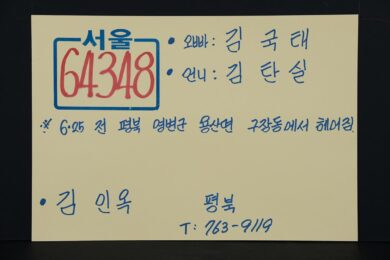 서울
64348
• 오빠: 김국태
• 언니: 김탄실
※ 6·25 전 평북 영변군 용산면 구장동에서 헤어짐.
• 김인옥 평북
T: 763-9119